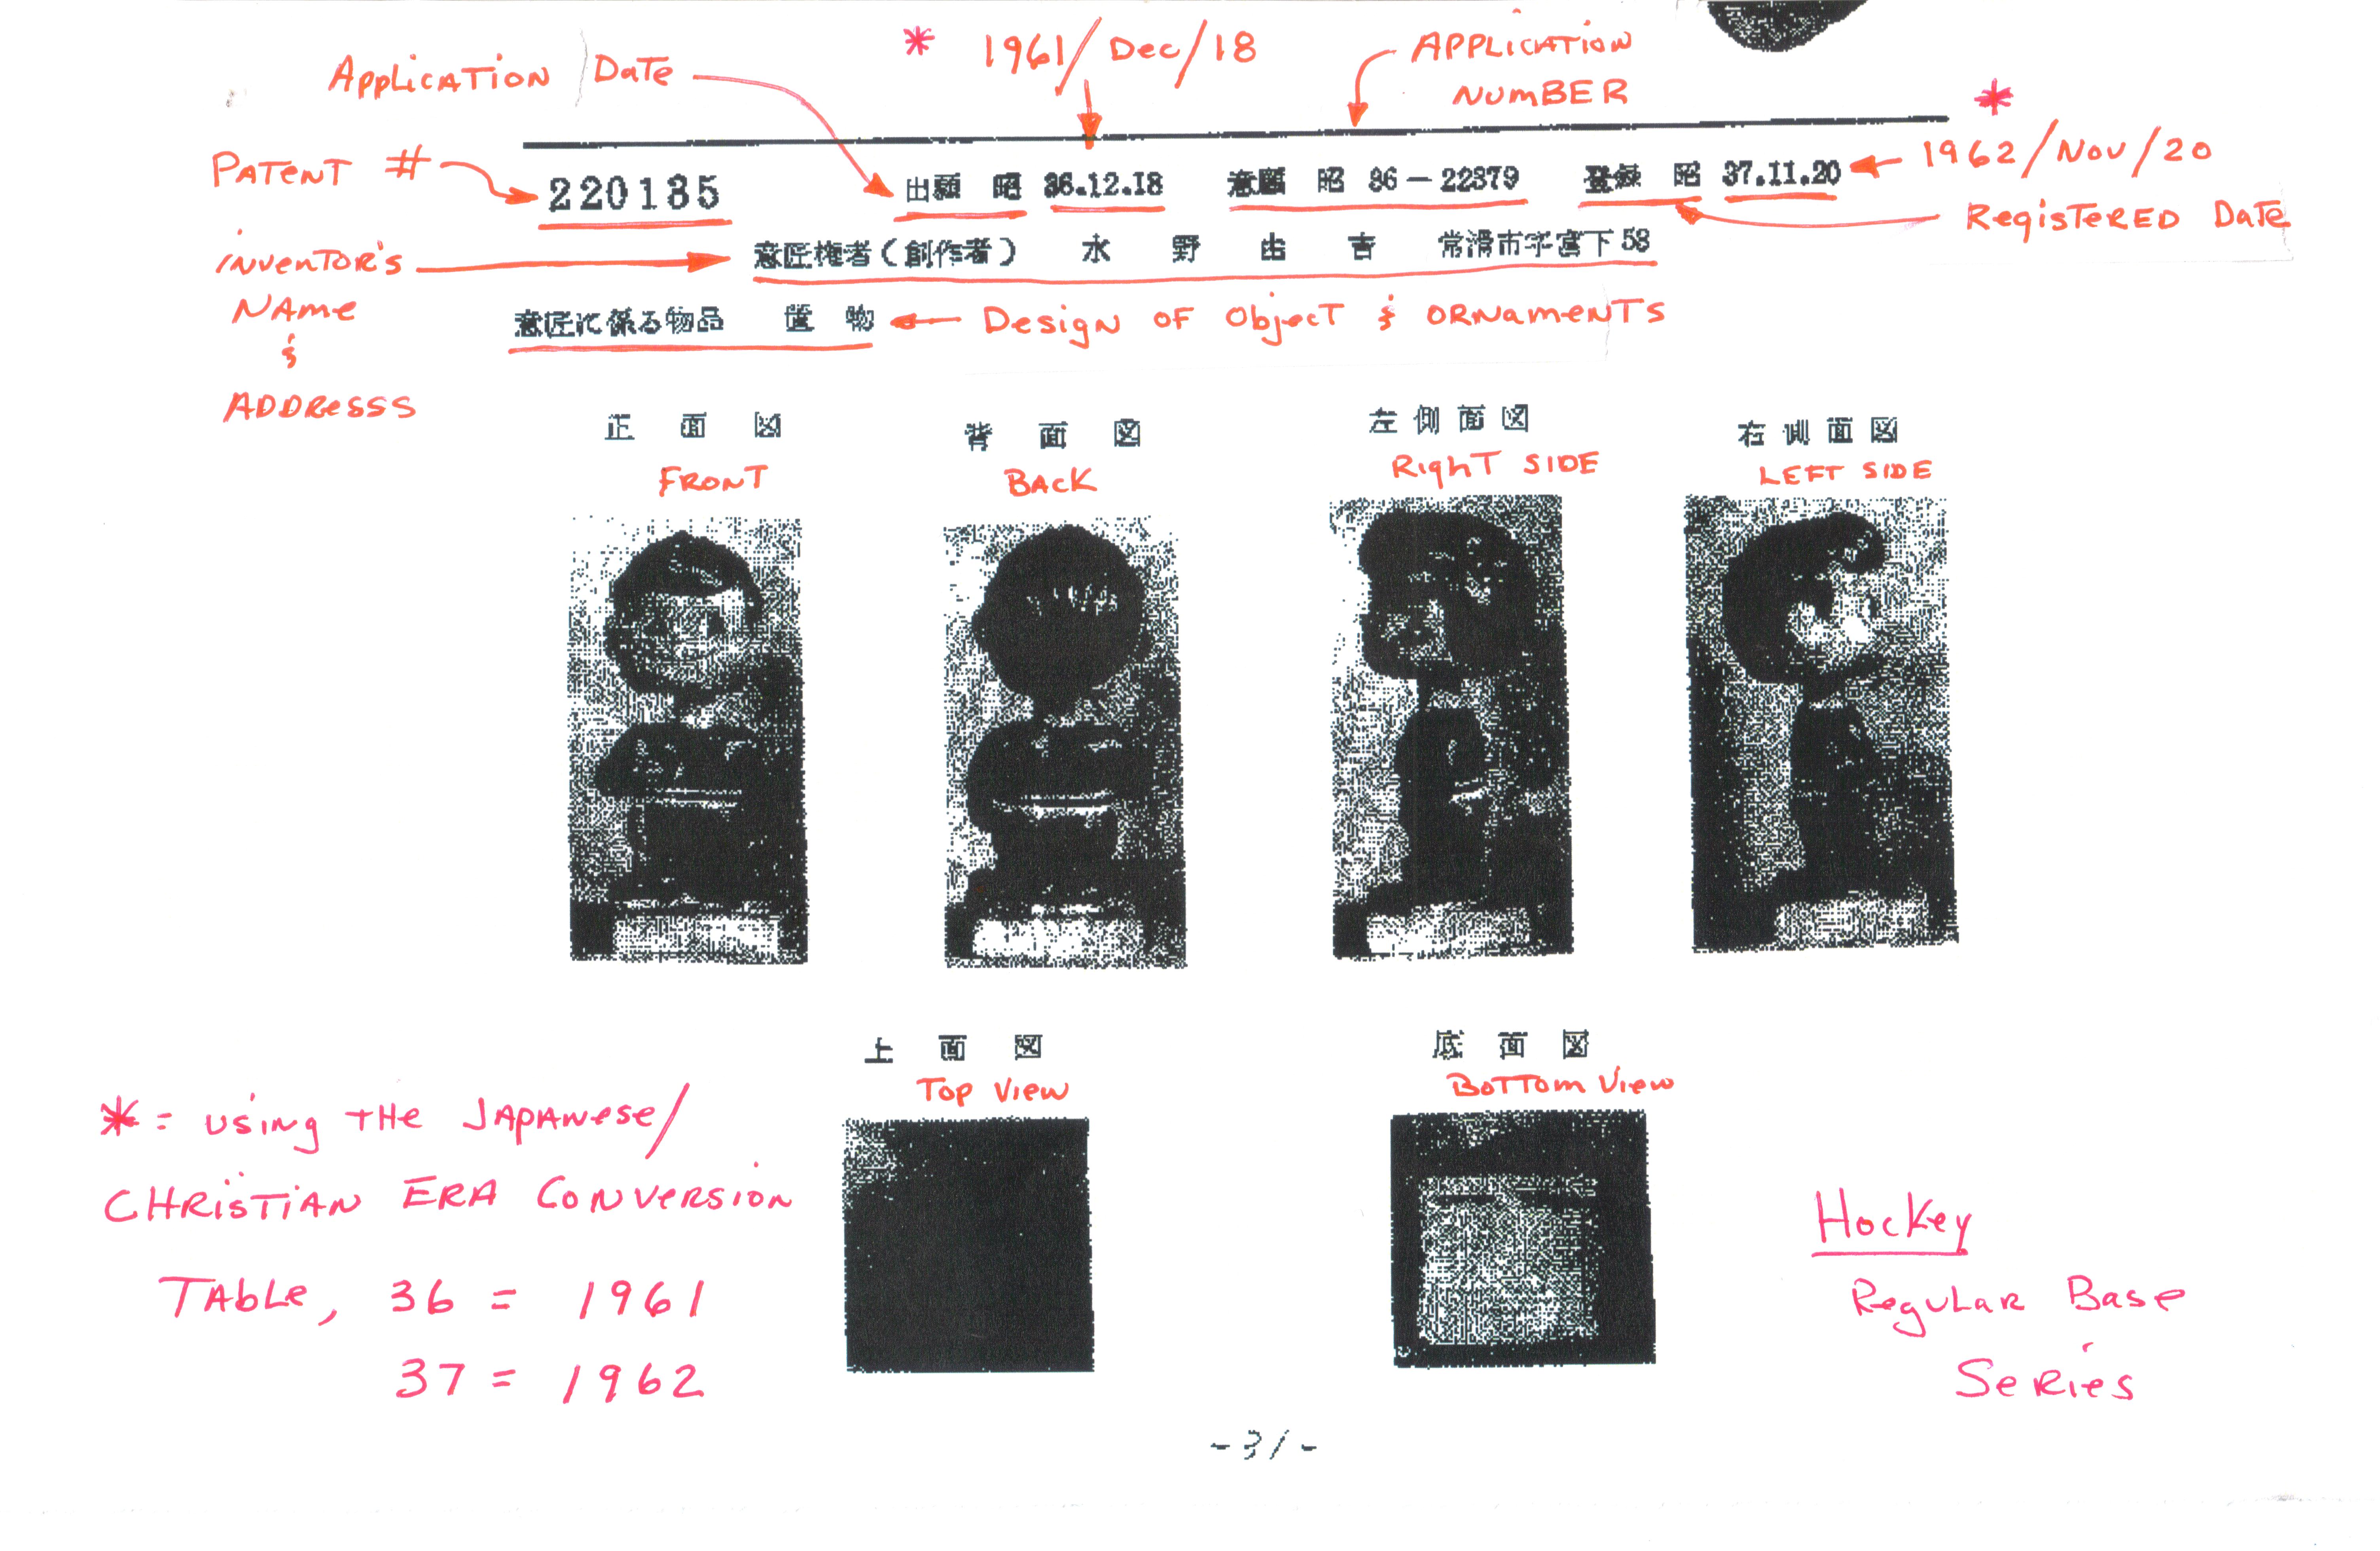 * 1961/Dec/18
APPLICATION NUMBER
Application Date
*
1962/Nov/20
PATENT #
220135 出願 昭 36.12.18 意願 昭 36－22379 登録 昭 37.11.20
Registered Date
inventor's
NAme
&
ADDRESSS
意匠権者（創作者） 水 野 由 吉 常滑市字宮下 58
意匠に係る物品 置 物
Design of Object & Ornaments
正 面 図
背 面 図
左 側 面 図
右 側 面 図
FRONT
BACK
Right SIDE
LEFT SIDE
上 面 図
底 面 図
Top View
Bottom View
* = using the Japanese/
Christian ERA Conversion
Table, 36 = 1961
37 = 1962
Hockey
Regular Base
Series
-31-